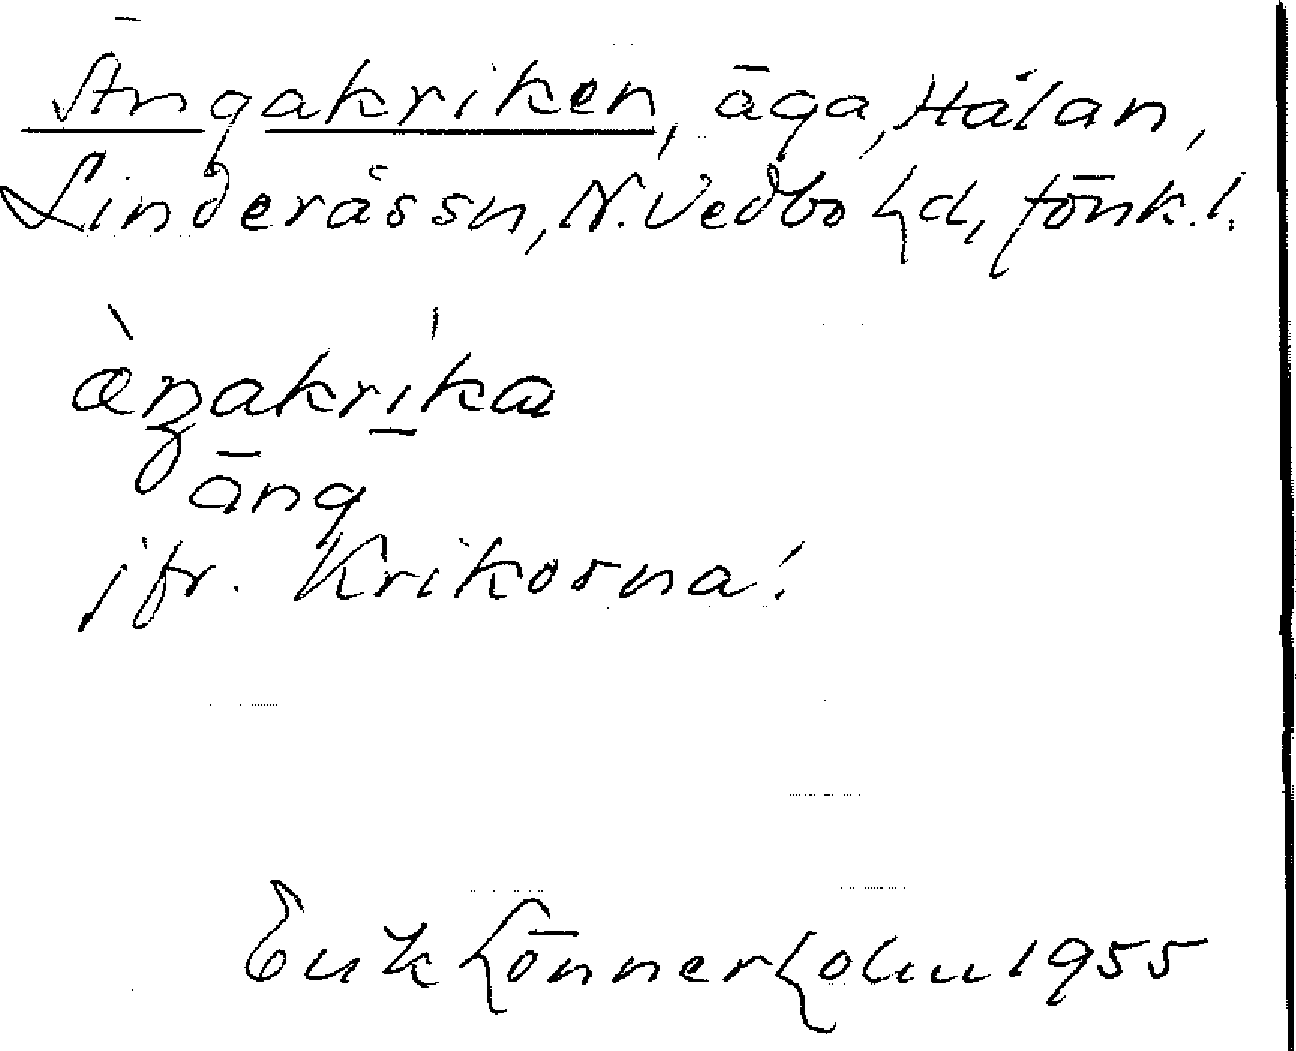 Ängakriken, äga, Hålan,
Linderåssn, N. Vedbo hd, Jönk. l.
äŋakrika
äng
jfr. Krikorna!
Erik Lönnerholm 1955